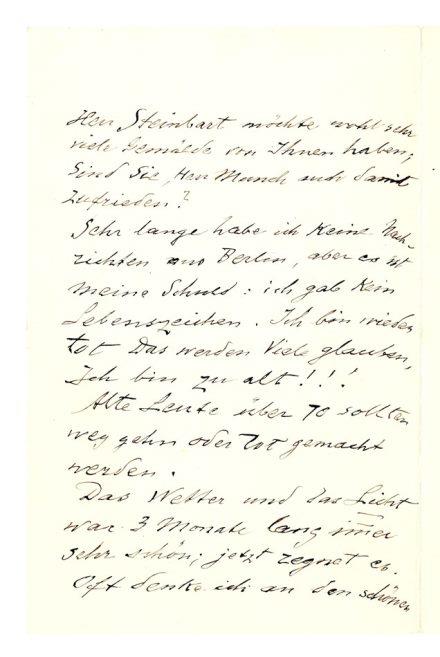 Herr Steinbart möchte wohl sehr
viele Gemälde von Ihnen haben,
sind Sie, Herr Munch auch damit
zufrieden?
Sehr lange habe ich keine Nach-
richten aus Berlin, aber es ist
meine Schuld: ich gab kein
Lebenszeichen. Ich bin wieder
tot Das werden Viele glauben,
Ich bin zu alt!!!
Alte Leute über 70 sollten
weg gehn oder tot gemacht
werden.
Das Wetter und das Licht
war 3 Monate lang immer
sehr schön; jetzt regnet es.
Oft denke ich an den schönen